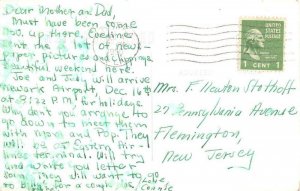 Dear Mother and Dad,
Must have been some
up there,
sent me a lot of news-
paper pictures and clippings
Beautiful weekend here.
Joe and Judy will arrive
Newark Airport, Dec 16th
at 8:22 P.M. for holidays.
Why don't you arrange to
go down to meet them
with Mom and Pop. They
will be at Eastern Air-
lines terminal. Will try
and write you letter
soon. They will want to
for a couple
Love
Connie
Mrs. F. Newton Stothoff
27 Pennsylvania Avenue
Flemington,
New Jersey
1 CENT 1